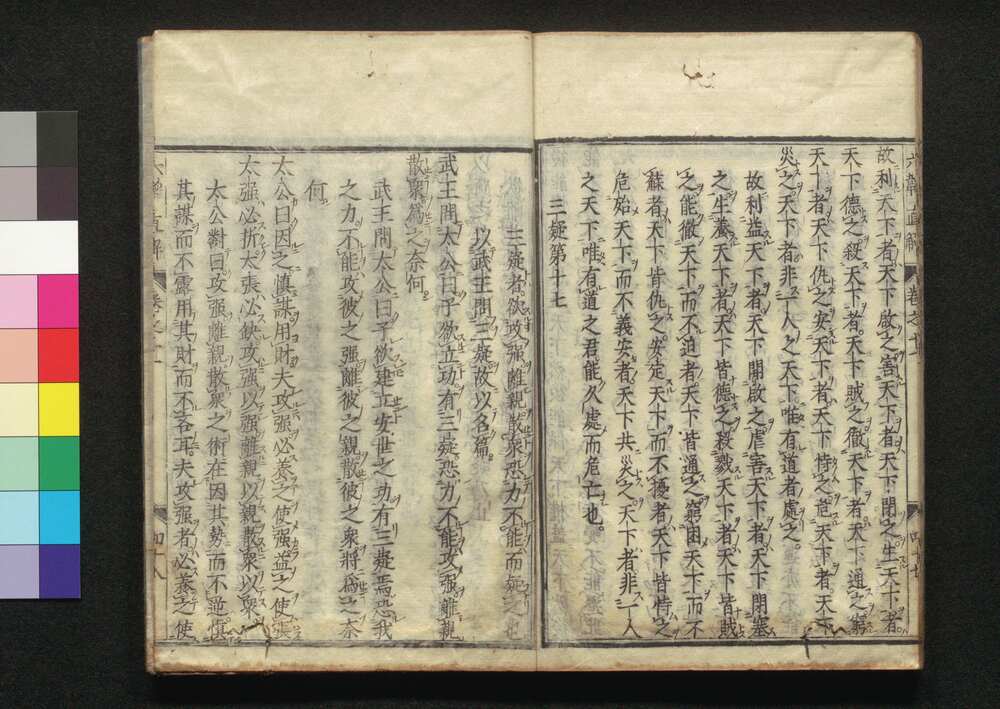 故利天下者天下啟之害天下者天下閉之生天下者
天下德之殺天下者天下賊之徹天下者天下通之窮
天下者天下仇之安天下者天下恃之危天下者天下
災之天下者非一人之天下唯有道者處之
故利益天下者天下開啟之虐害天下者天下閉塞
之生養天下者天下皆德之殺戮天下者天下皆賊
之能徹天下而不迫者天下皆通之窮困天下而不
蘇者天下皆仇之安定天下而不擾者天下皆恃之
危殆天下而不義安者天下共災之天下者非一人
之天下唯有道之君能久處而危亡也
三疑第十七
三疑者欲攻强離親散衆恐力不能而疑之也
以武王問三疑故以名篇
武王問太公曰予欲立功有三疑恐力不能攻强離親
散衆爲之奈何
武王問太公曰予欲建立安世之功有三疑焉恐我
之力不能攻彼之强離彼之親散彼之衆將爲之奈
何
太公曰因之慎謀用財夫攻强必養之使强益之使張
太强必折太張必缺攻强以强離親以親散衆以衆
太公對曰攻强離親散衆之術在因其勢而不逆慎
其謀而不露用其財而不吝耳夫攻强者必養之使
六韜直解
卷之
四十八